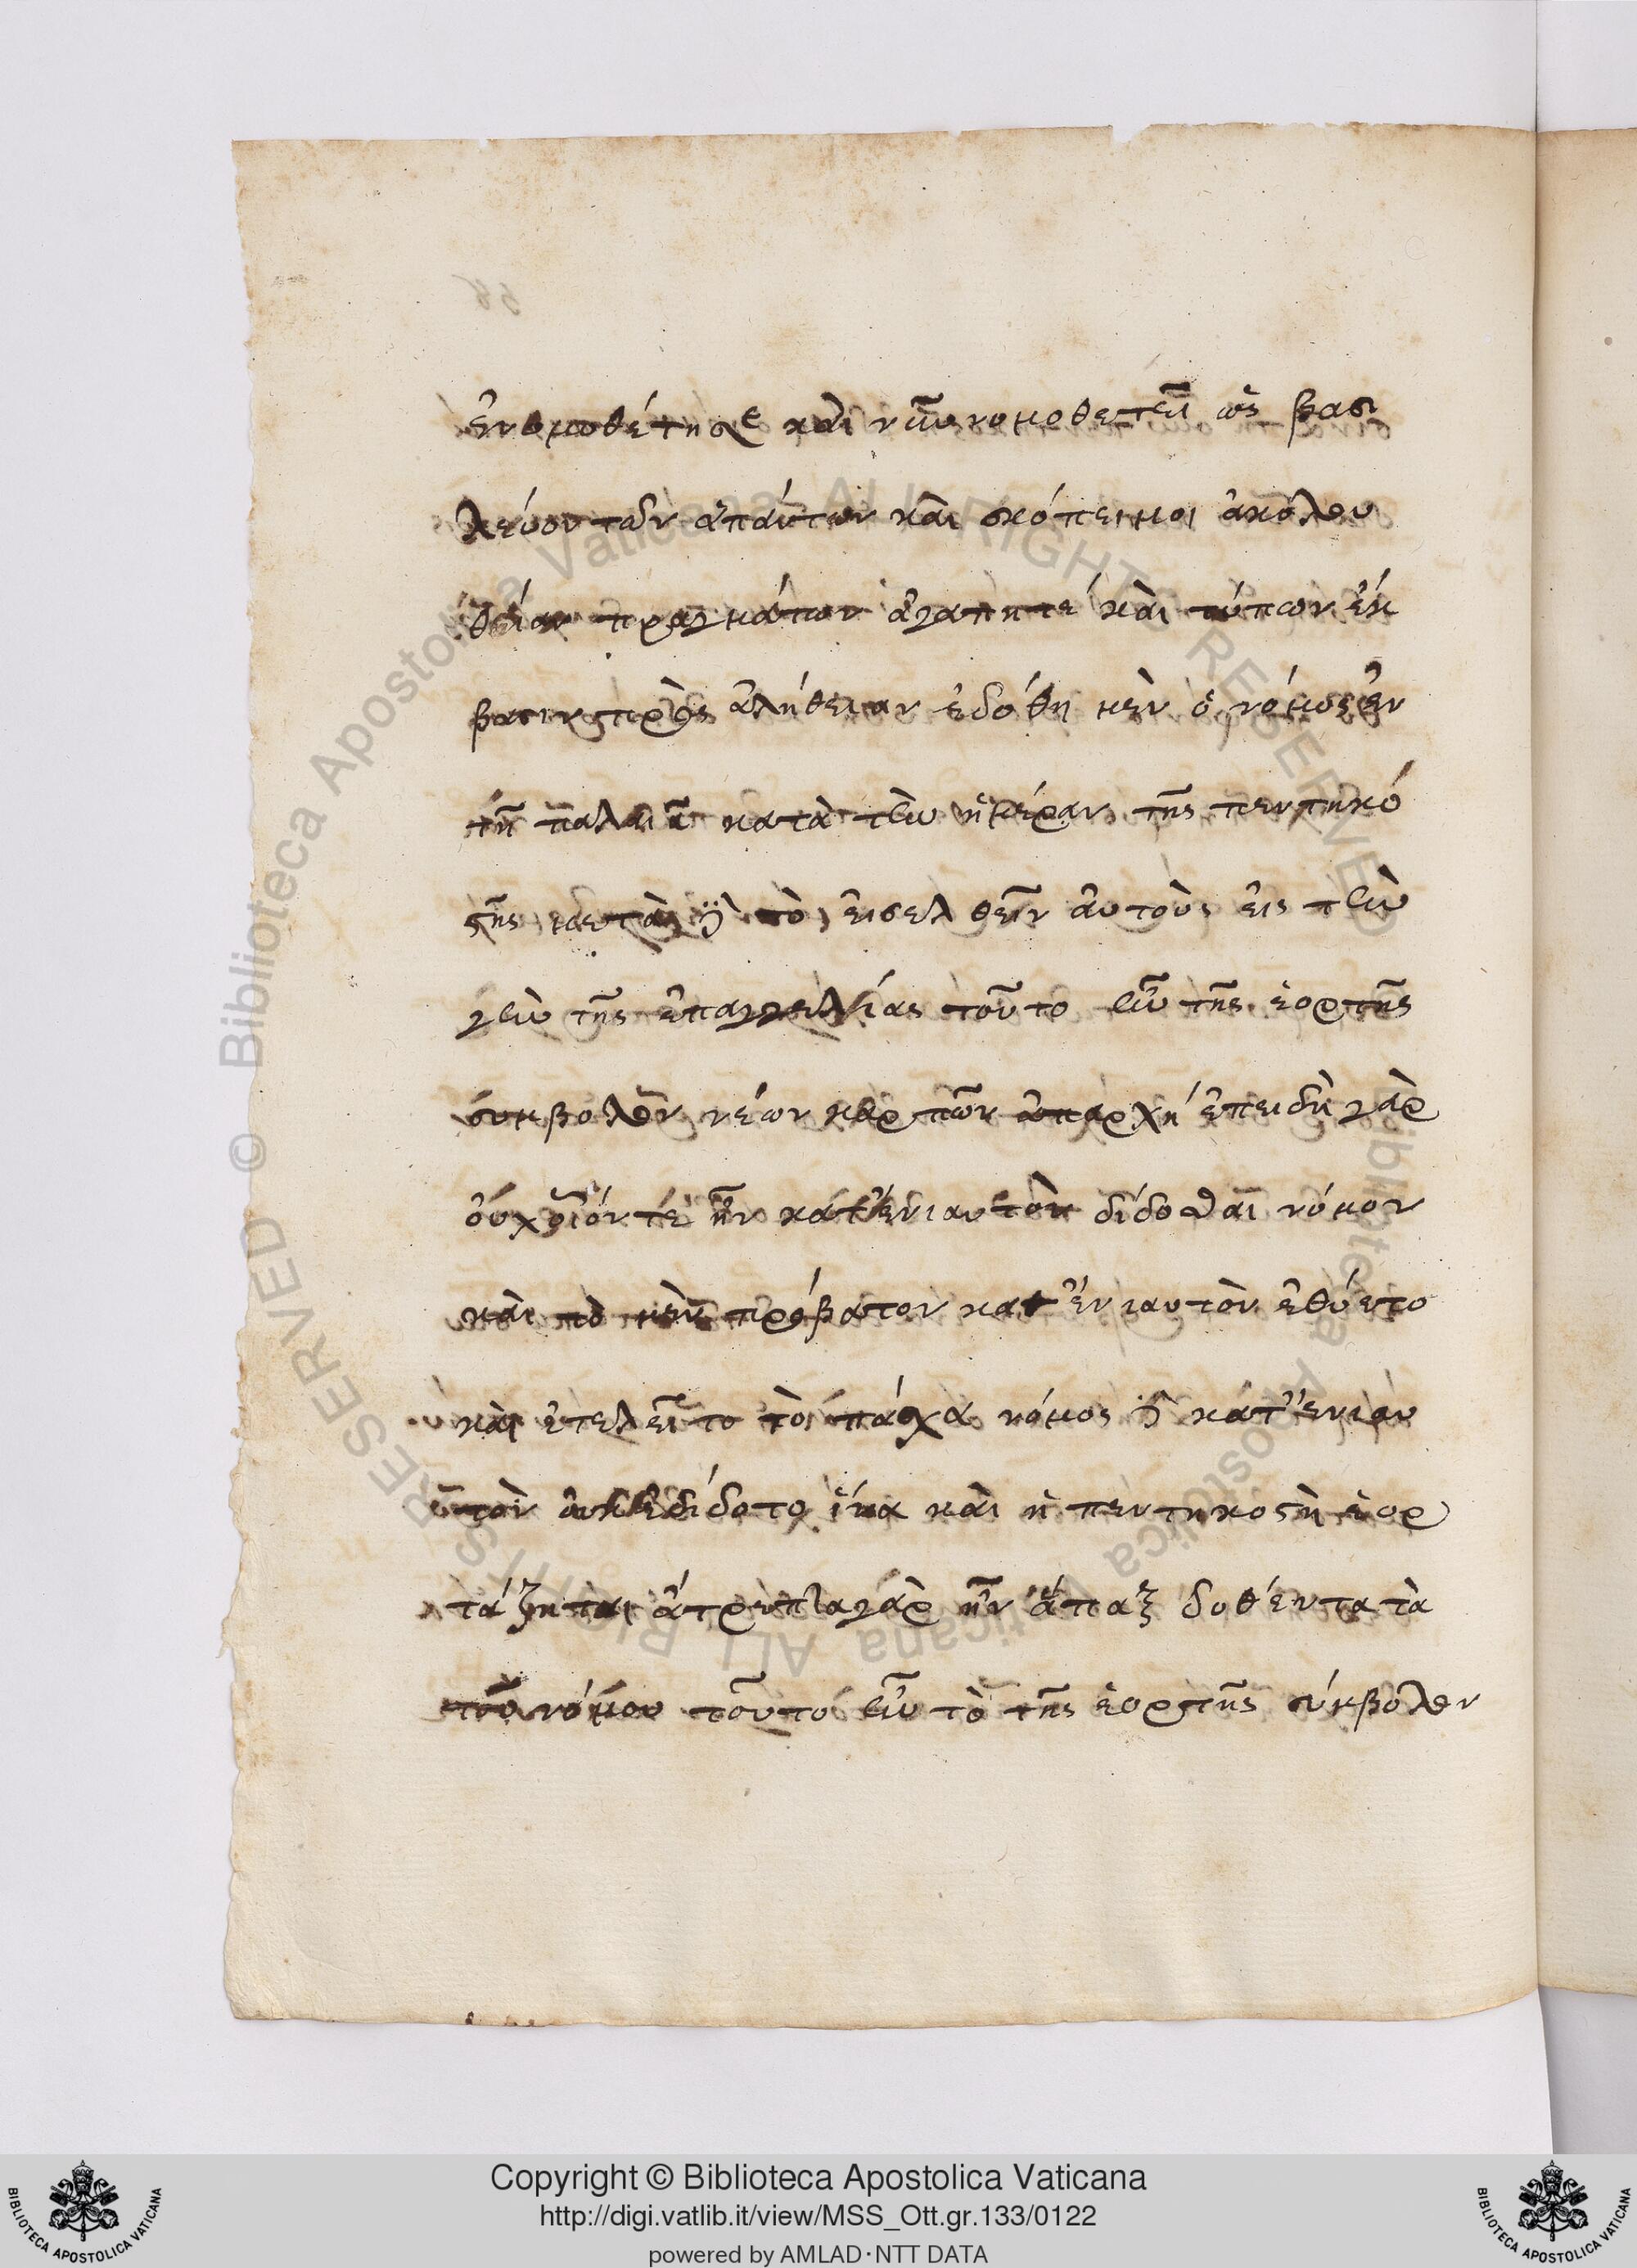 ἐνομοθέτησε καὶ νῦν νομοθετεῖ ὡς βασι
λεύον τῶν ἁπάντων καὶ σκόπει μοι ἀκολου
θίαν πραγμάτων ἀγαπητέ καὶ τύπων ἔκ
βασιν πρὸς ἀλήθειαν ἐδόθη μὲν ὁ νόμος ἐν
τῇ παλαιᾷ κατὰ τὴν ἡμέραν τῆς πεντηκό
στῆς μετὰ δὲ τὸ εἰσελθεῖν αὐτοὺς εἰς τὴν
γῆν τῆς ἐπαγγελίας τοῦτο ἦν τῆς ἑορτῆς
σύμβολον νέων καρπῶν ἀπαρχή ἐπειδὴ γὰρ
οὐχ οἷόν τε ἦν κατ' ἐνιαυτὸν δίδοσθαι νόμον
καὶ τὸ μὲν πρόβατον κατ' ἐνιαυτὸν ἐθύετο
καὶ ἐτελεῖτο τὸ πάσχα νόμος δὲ κατ' ἐνιαυ
τὸν οὐκ ἐδίδοτο ἵνα καὶ ἡ πεντηκοστὴ ἑορ
τάζηται ἄτρεπτα γὰρ ἦν ἅπαξ δοθέντα τὰ
τοῦ νόμου τοῦτο ἦν τὸ τῆς ἑορτῆς σύμβολον
Copyright © Biblioteca Apostolica Vaticana
http://digi.vatlib.it/view/MSS_Ott.gr.133/0122
powered by AMLAD·NTT DATA